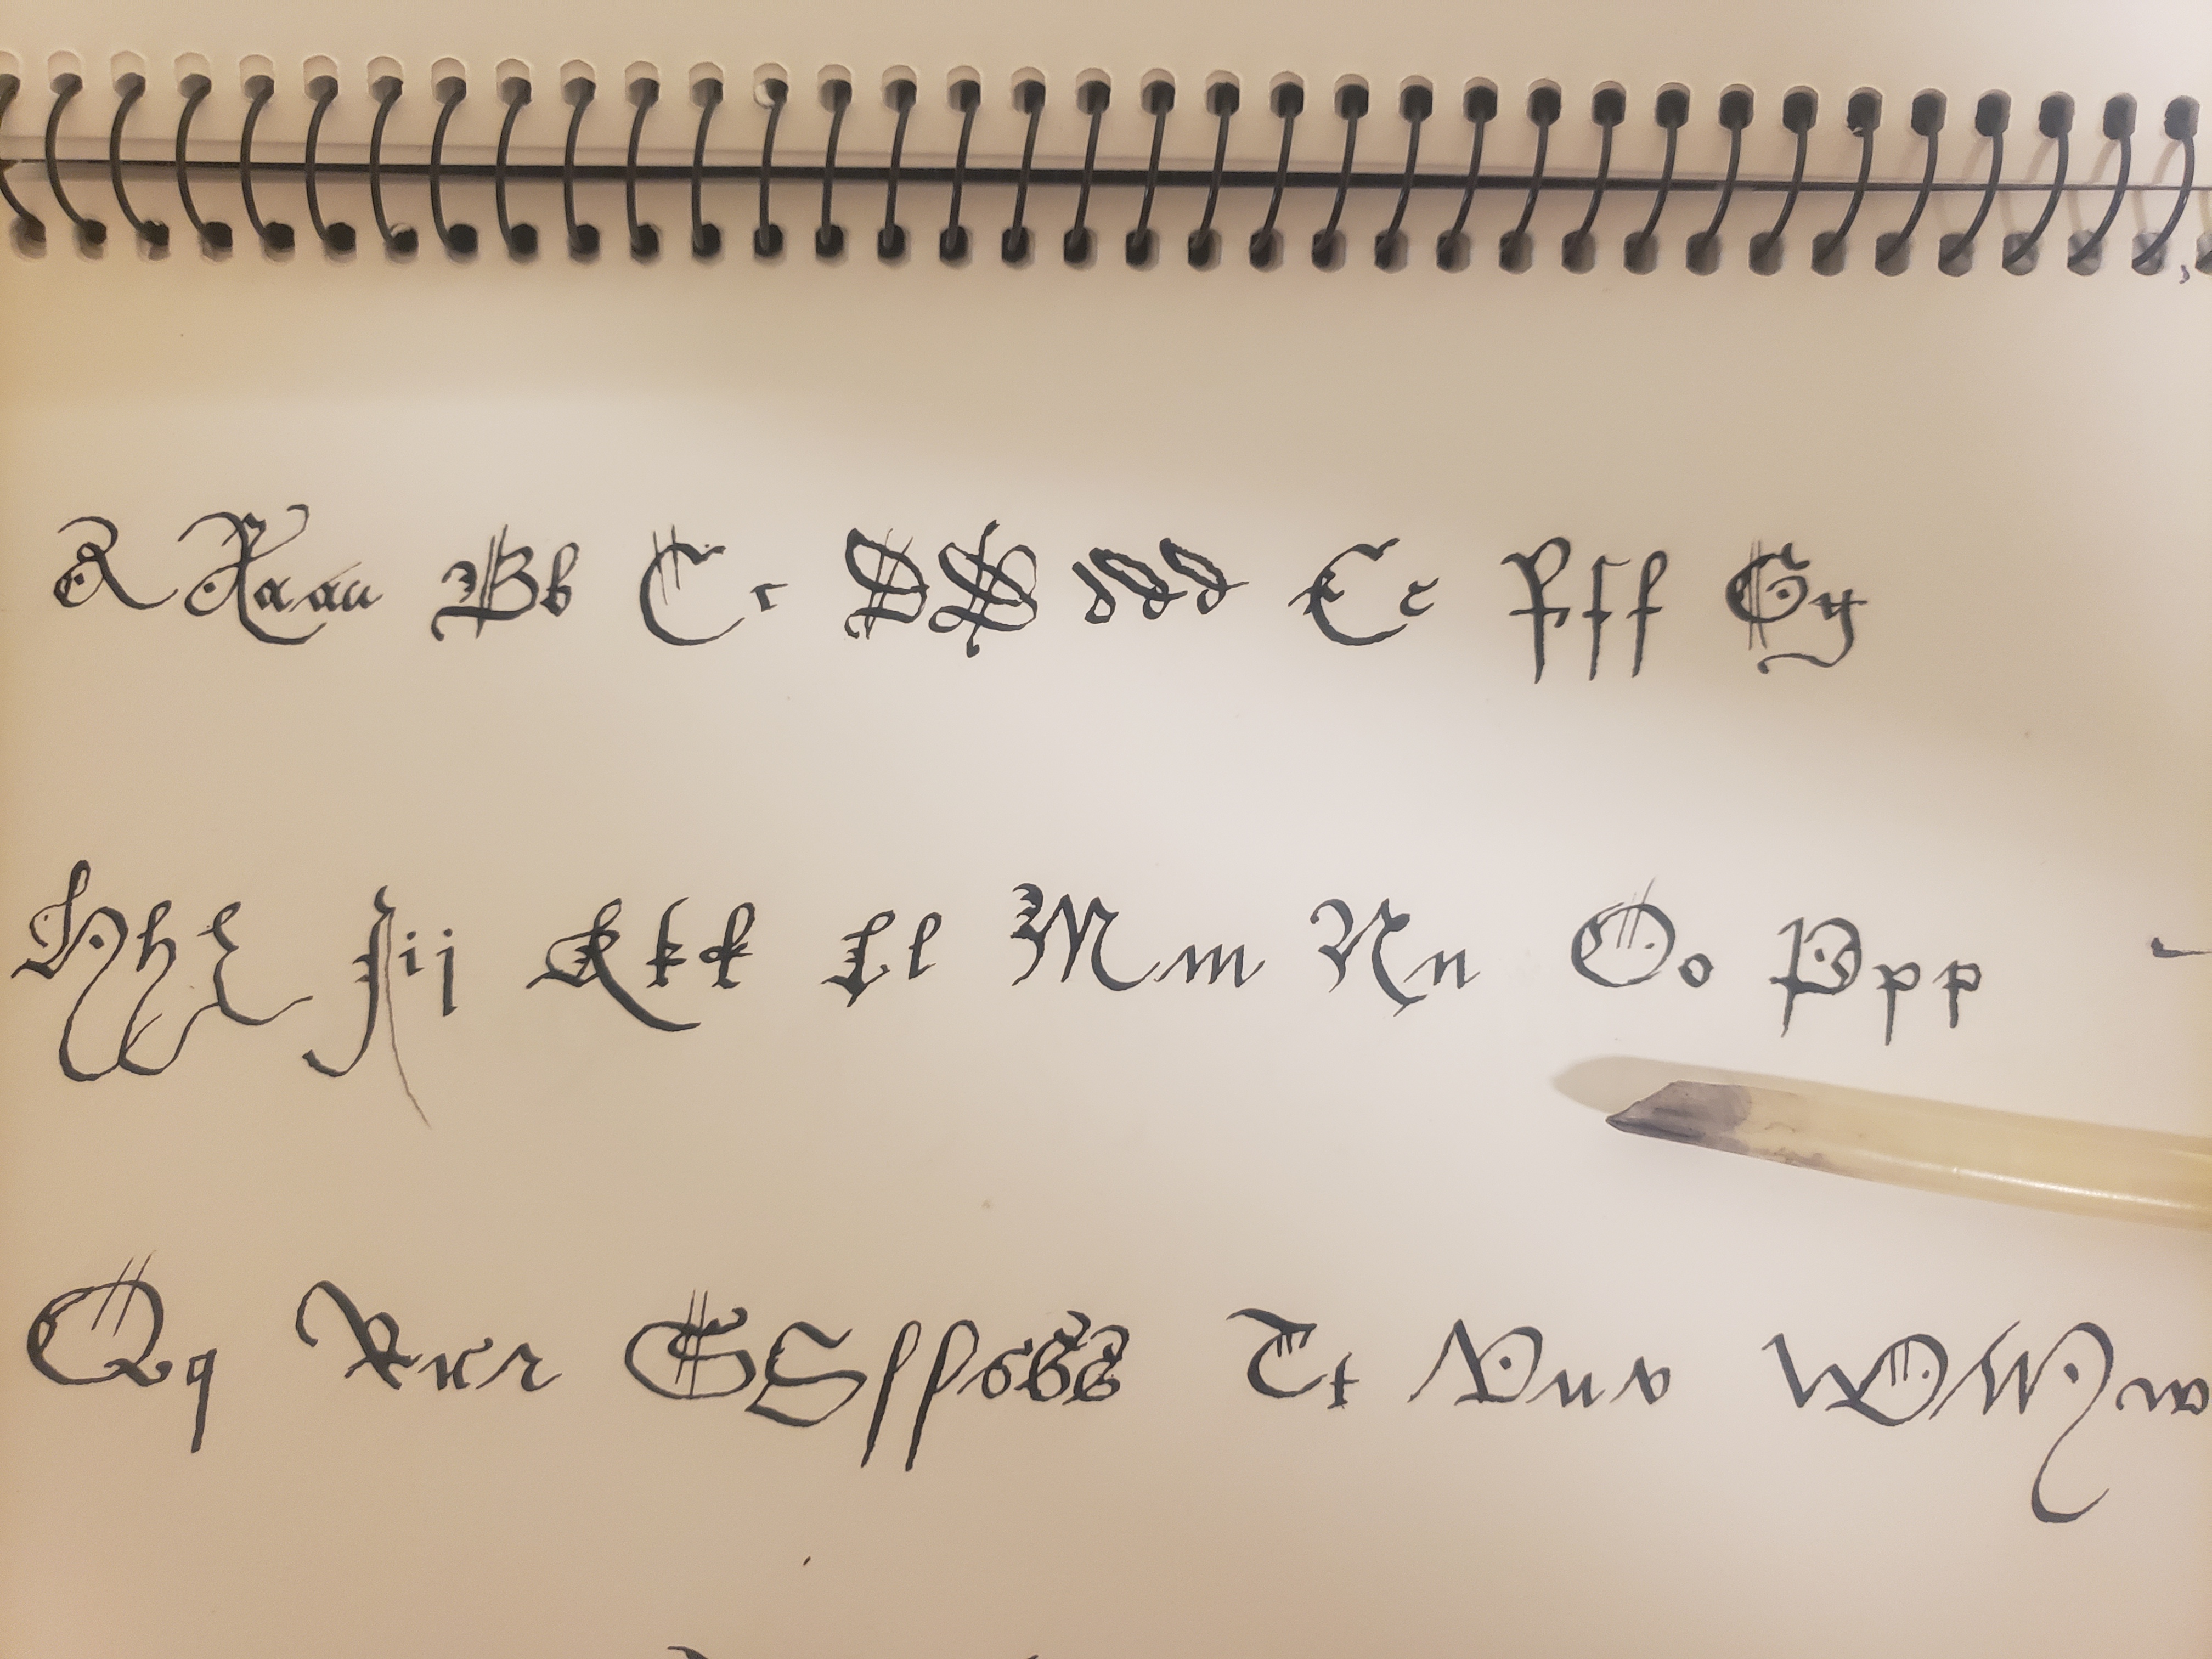 A A a a a B b C c D D d d d E e F f f G g
H h h J i j K k k L l M m N n O o P p p
Q q R r r S S ſ ſ s s s T t V u v W W w